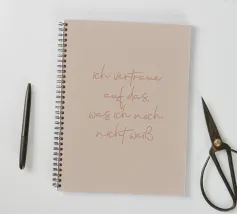 ich vertraue
auf das,
was ich noch
nicht weiß